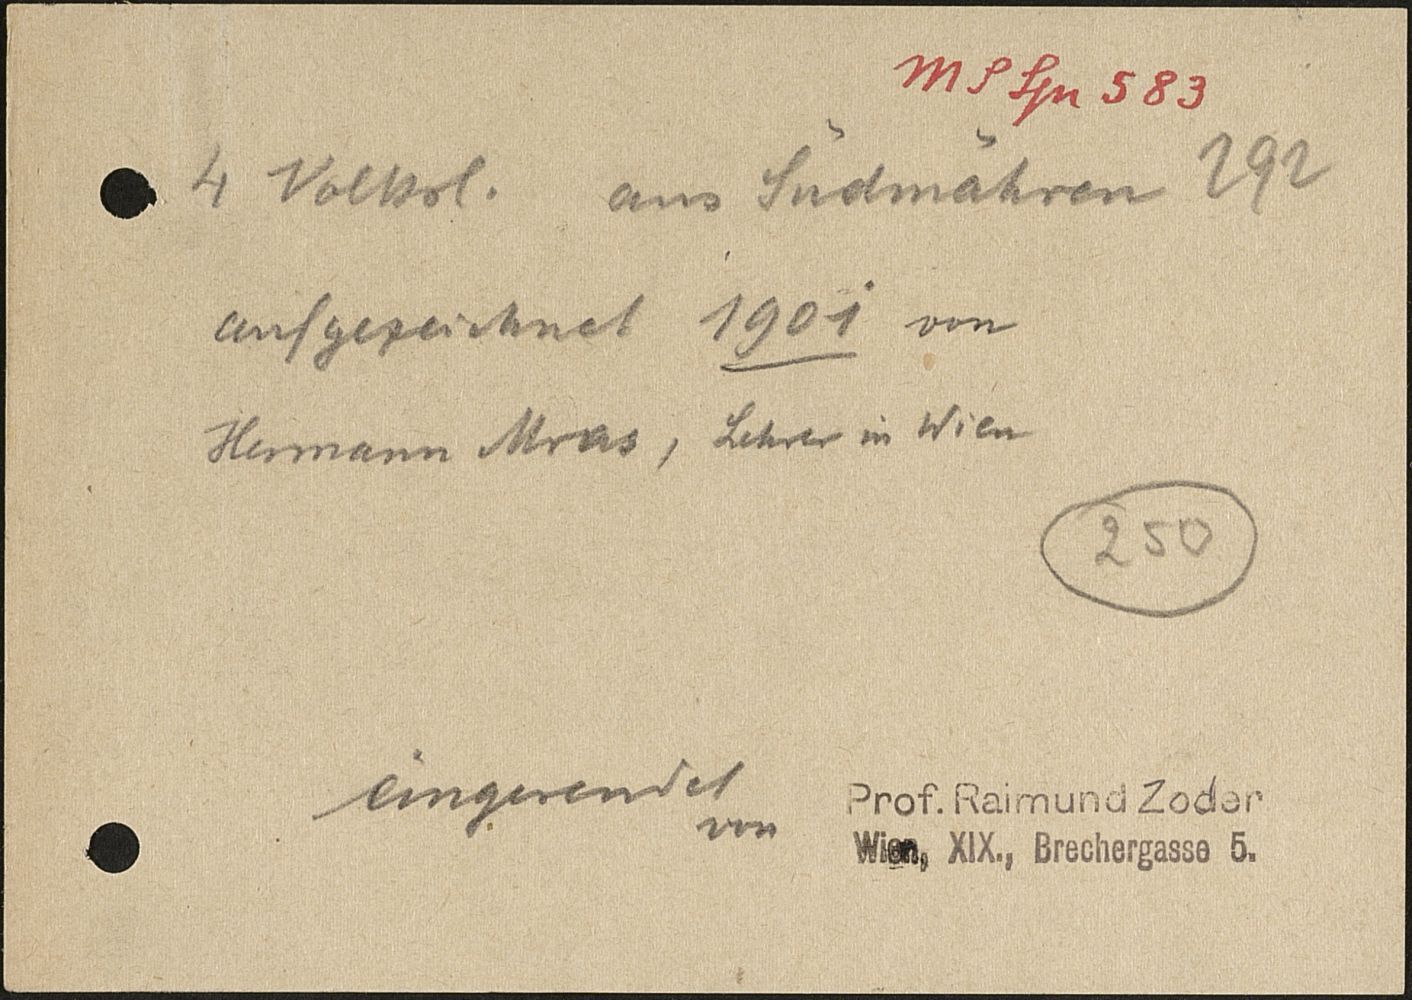 MS Spn 583
4 Volksl. aus Südmähren 292
aufgezeichnet 1901 von
Hermann Mras, Lehrer in Wien
250
eingesendet
von
Prof. Raimund Zoder
Wien, XIX., Brechergasse 5.